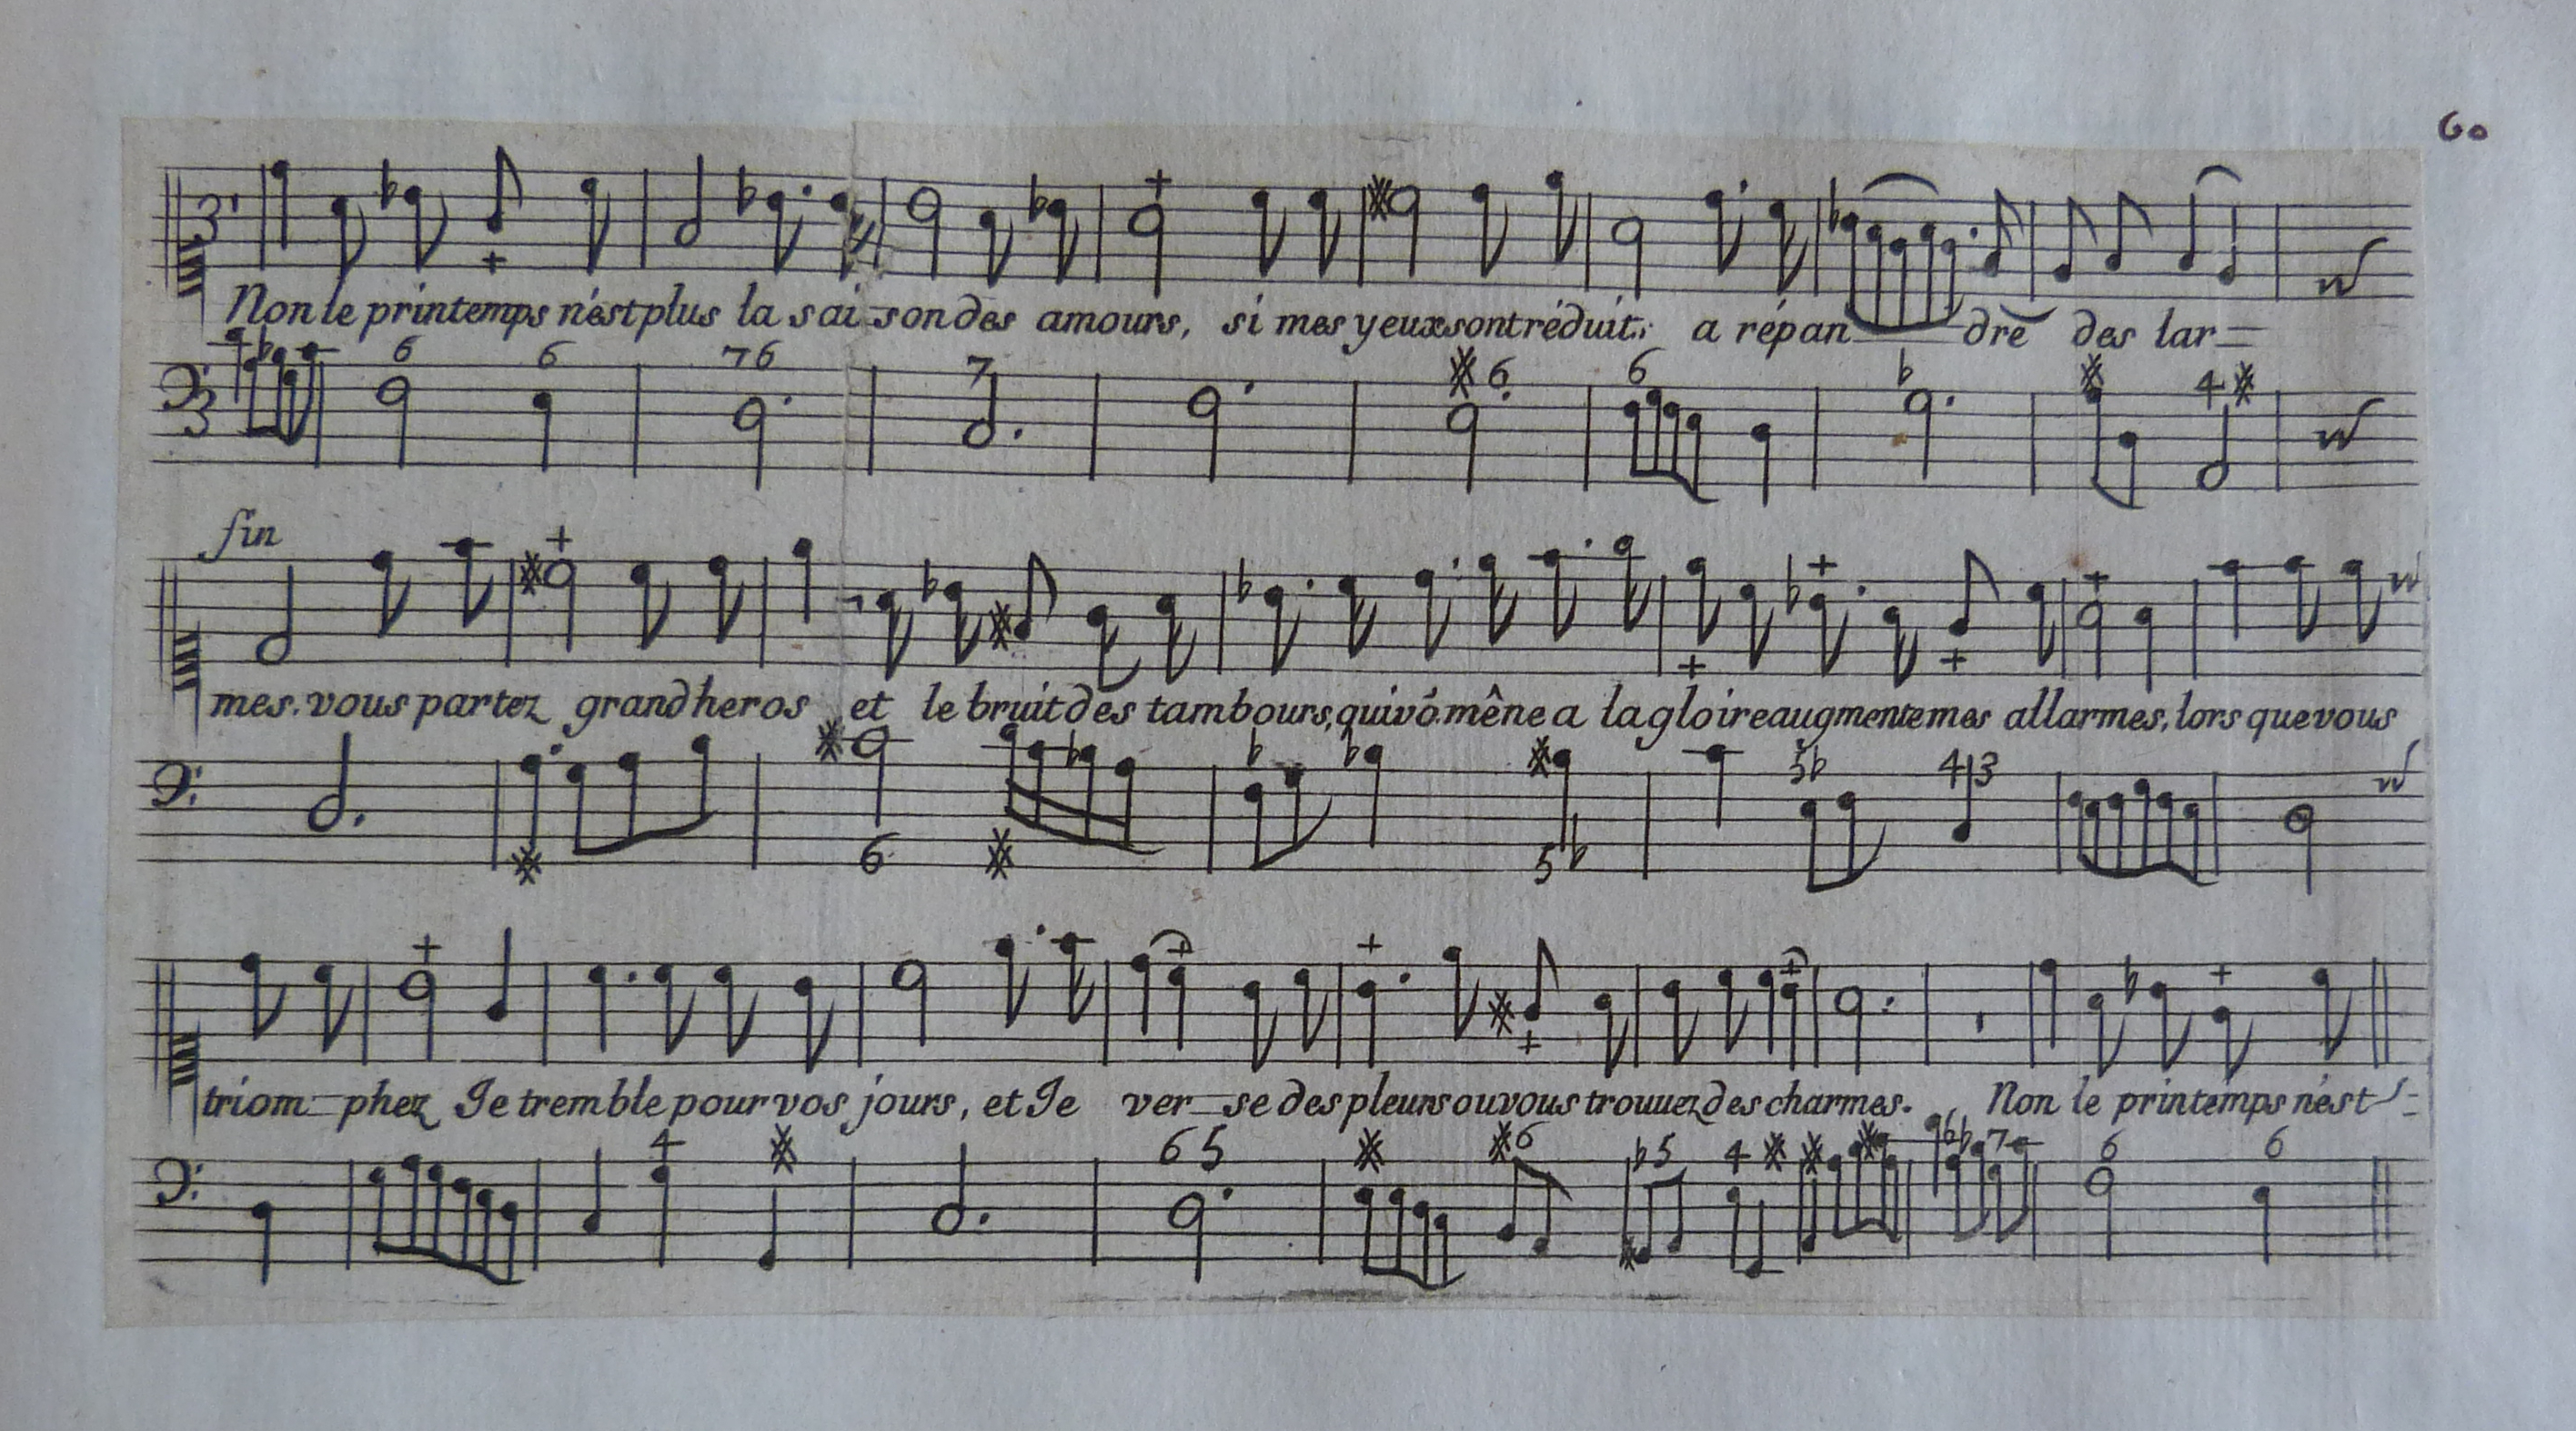 60
Non le printemps n'est plus la sai-son des amours, si mes yeux sont réduit: a répan dre des lar=
6 6 76 7 6 6 4
fin
mes. vous partez grand heros et le bruit des tambours, qui vo. mêne a la gloire augmente mes allarmes, lors que vous
6 5b 5b 43
triom-phez Je tremble pour vos jours, et Je ver-se des pleurs ou vous trouuez des charmes. Non le printemps n'est
4 65 6 b5 4 6b 7 6 6